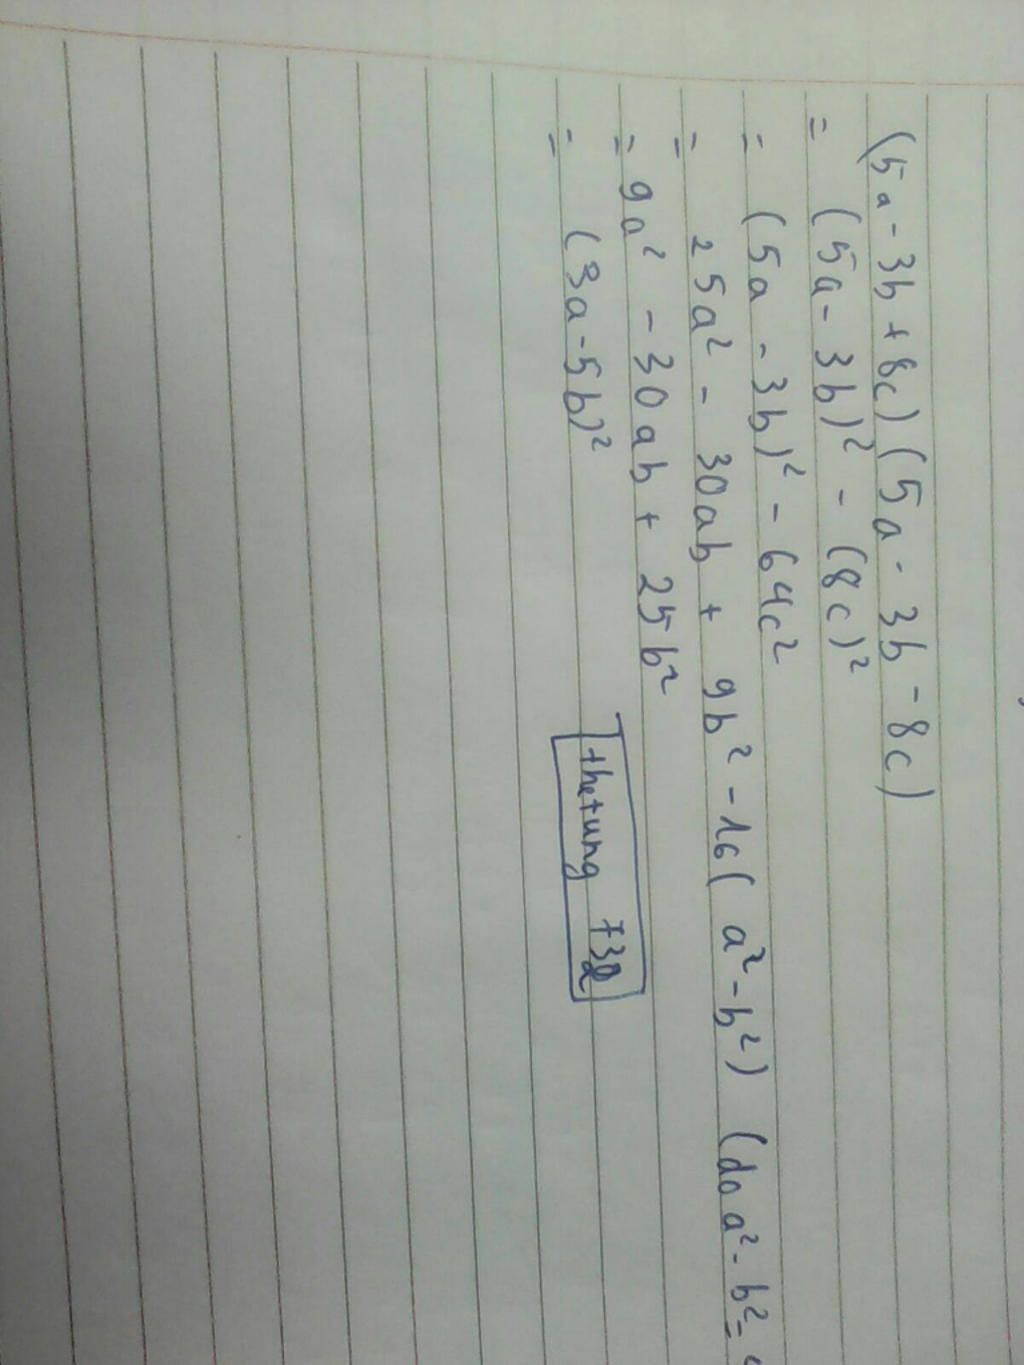 (5a - 3b + 8c)(5a - 3b - 8c)
= (5a - 3b)² - (8c)²
= (5a - 3b)² - 64c²
= 25a² - 30ab + 9b² - 16(a² - b²) (do a² - b² =
= 9a² - 30ab + 25b²
= (3a - 5b)²
thetung